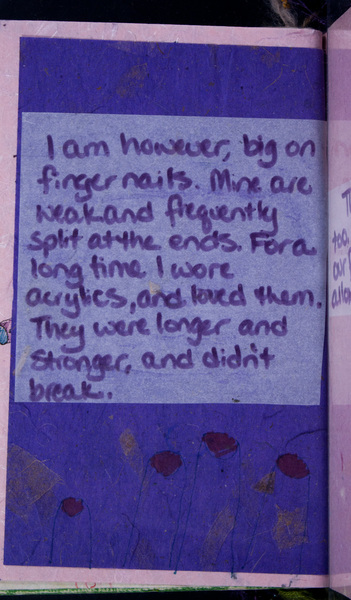 I am however, big on
finger nails. Mine are
weak and frequently
split at the ends. For a
long time I wore
acrylics, and loved them.
They were longer and
stronger, and didn't
break.
too,
our